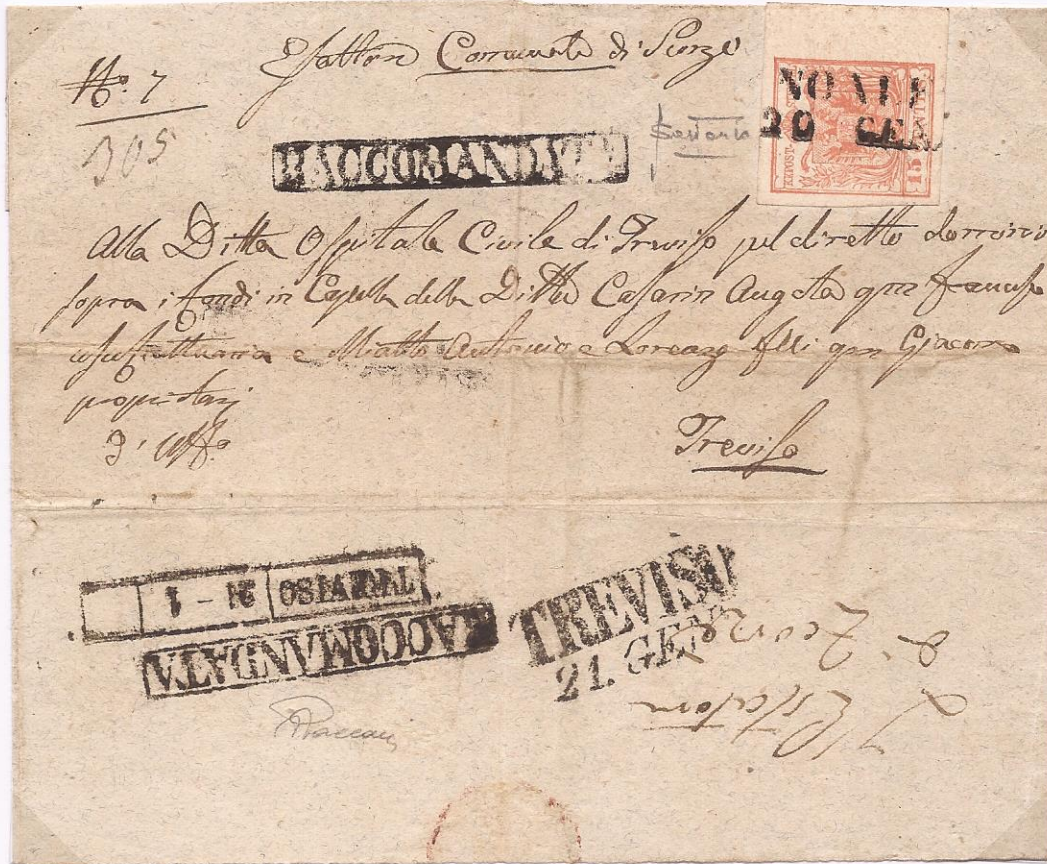 No. 7
Esattore Comunale di
305
RACCOMANDATA
NOALE
20 GEN
KKPOST 15
Alla Ditta Ospitale Civile di Treviso pel diretto dominio
sopra i fondi in della Ditta Casarin Augusta qm
usufruttuaria e Miatto Antonio e Lorenzo flli qm Giacomo
proprietarj
D'Uffo
Treviso
TREVISO 21 - 1
RACCOMANDATA
TREVISO
21. GEN
L'Esattore
di